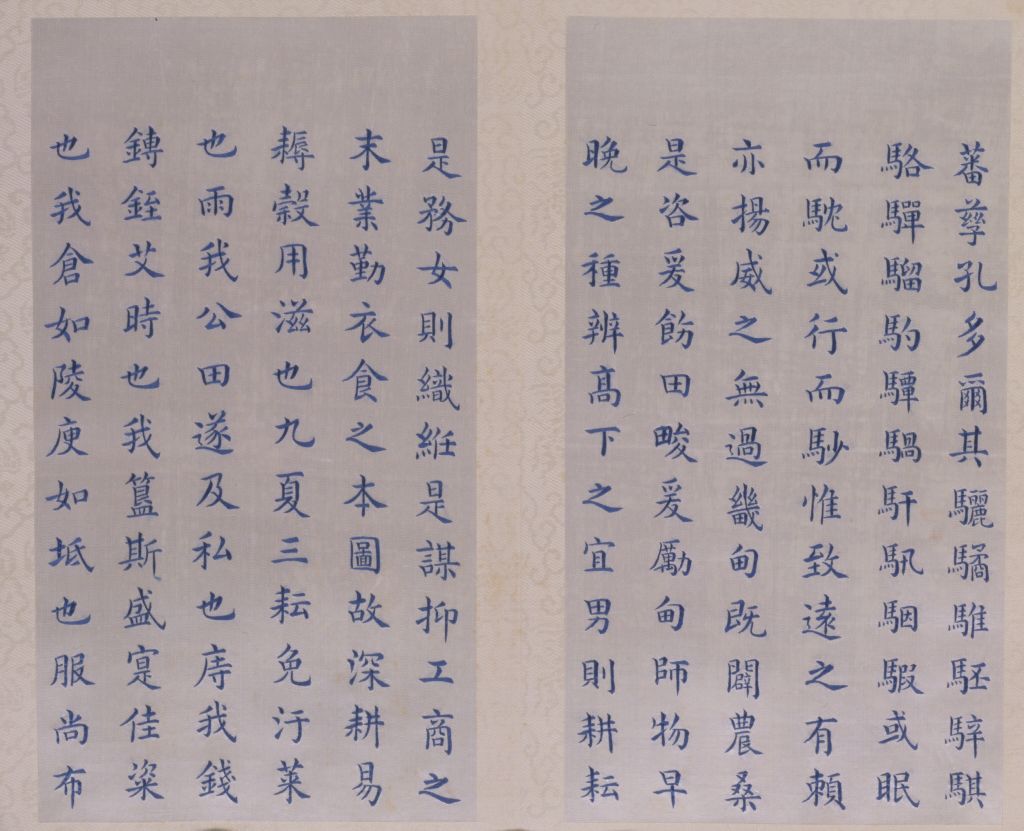 蕃孳孔多爾其驪驈騅駓騂騏
駱驒騮馰驔騧馯馻駰騢或眠
而或行而惟致遠之有賴
亦揚威之無過畿甸既闢農桑
是咨爰飭田畯爰勵甸師物早
晚之種辨髙下之宜男則耕耘
是務女則織紝是謀抑工商之
末業勤衣食之本圖故深耕易
耨穀用滋也九夏三耘免汙萊
也雨我公田遂及私也庤我錢
鎛銍艾時也我簠斯盛寔佳粢
也我倉如陵庾如坻也服尚布